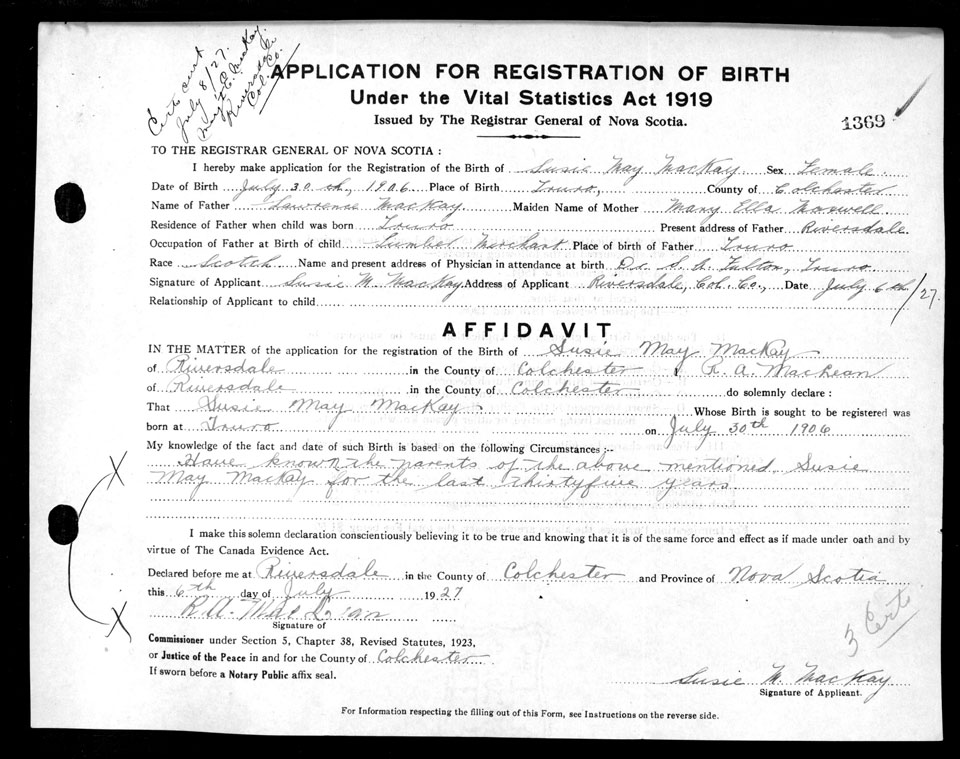 Certs out
July 8/27.
May E. MacKay
Riversdale
Col. Co.
APPLICATION FOR REGISTRATION OF BIRTH
Under the Vital Statistics Act 1919
Issued by The Registrar General of Nova Scotia.
1369
TO THE REGISTRAR GENERAL OF NOVA SCOTIA :
I hereby make application for the Registration of the Birth of Susie May MacKay Sex Female
Date of Birth July 30th, 1906 Place of Birth Truro, County of Colchester
Name of Father Lawrence MacKay Maiden Name of Mother Mary Ella Boswell
Residence of Father when child was born Truro Present address of Father Riversdale
Occupation of Father at Birth of child Lumber Merchant Place of birth of Father Truro
Race Scotch Name and present address of Physician in attendance at birth Dr. S. A. Fulton, Truro
Signature of Applicant Susie M. MacKay Address of Applicant Riversdale, Col. Co., Date July 6th/27.
Relationship of Applicant to child
AFFIDAVIT
IN THE MATTER of the application for the registration of the Birth of Susie May MacKay
of Riversdale in the County of Colchester I R. A. MacLean
of Riversdale in the County of Colchester do solemnly declare :
That Susie May MacKay Whose Birth is sought to be registered was
born at Truro on July 30th 1906
My knowledge of the fact and date of such Birth is based on the following Circumstances ;--
Have known the parents of the above mentioned Susie
May MacKay for the last thirtyfive years.
I make this solemn declaration conscientiously believing it to be true and knowing that it is of the same force and effect as if made under oath and by
virtue of The Canada Evidence Act.
Declared before me at Riversdale in the County of Colchester and Province of Nova Scotia
this 6th day of July 1927
R. A. MacLean
Signature of
Commissioner under Section 5, Chapter 38, Revised Statutes, 1923,
or Justice of the Peace in and for the County of Colchester
If sworn before a Notary Public affix seal.
3 Certs
Susie M. MacKay
Signature of Applicant.
For Information respecting the filling out of this Form, see Instructions on the reverse side.